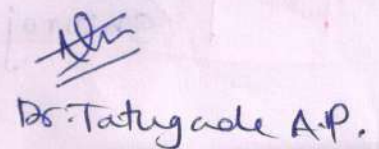 Dr. Tatugade A.P.